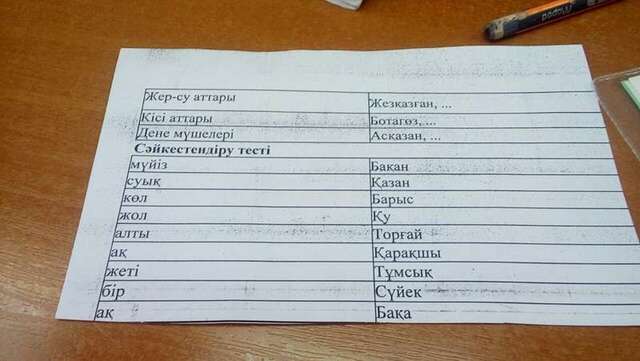 Жер-су аттары Жезқазған, ...
Кісі аттары Ботагөз, ...
Дене мүшелері Асқазан, ...
Сәйкестендіру тесті
мүйіз Бақан
суық Қазан
көл Барыс
жол Қу
алты Торғай
ақ Қарақшы
жеті Тұмсық
бір Сүйек
ақ Бақа